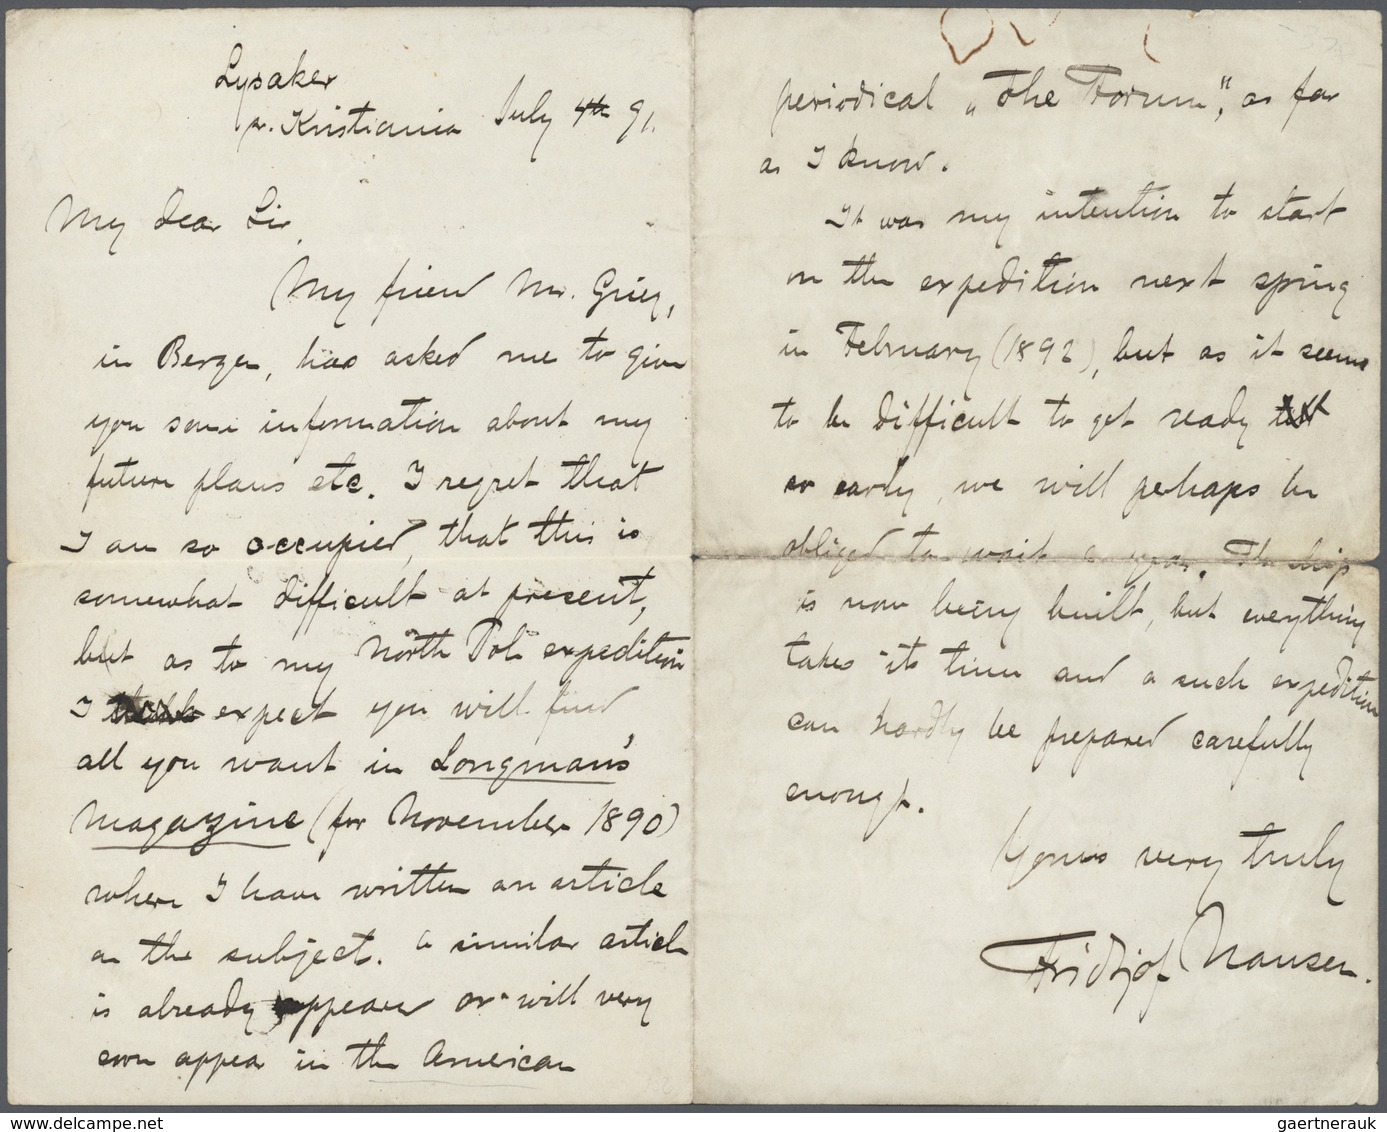 Lysaker
pr. Kristiania July 4th 91.
My dear Sir,
My friend Mr. Grieg,
in Bergen, has asked me to give
you some information about my
future plans etc. I regret that
I am so occupied, that this is
somewhat difficult at present,
but as to my North Pole expedition
I expect you will find
all you want in Longman's
Magazine (for November 1890)
where I have written an article
on the subject. a similar article
is already appeared or will very
soon appear in the American
periodical „The Forum", as far
as I know.
It was my intention to start
on the expedition next spring
in February (1892), but as it seems
to be difficult to get ready
so early, we will perhaps be
obliged to wait a year. The ship
is now being built, but everything
takes its time and a such expedition
can hardly be prepared carefully
enough.
Yours very truly
Fridtjof Nansen.
www.delcampe.net
gaertnerauk